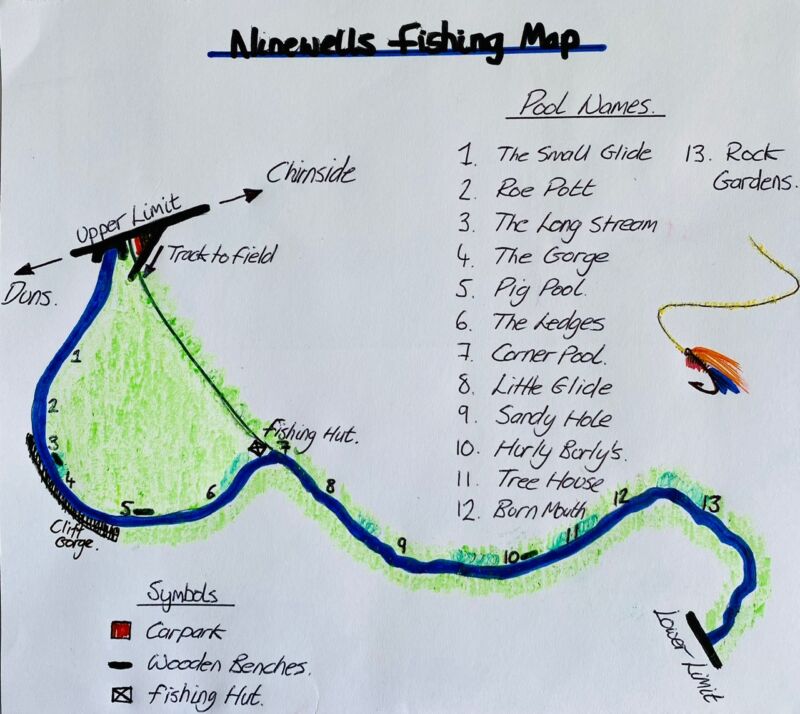 Ninewells Fishing Map
Pool Names.
1. The Small Glide
2. Roe Pott
3. The Long Stream
4. The Gorge
5. Pig Pool.
6. The Ledges
7. Corner Pool.
8. Little Glide
9. Sandy Hole
10. Hurly Burly's.
11. Tree House
12. Burn Mouth
13. Rock
Gardens.
Chirnside
Upper Limit
Track to field
Duns.
1
2
3
4
Cliff
Gorge.
5
6
Fishing Hut.
7
8
9
10
11
12
13
Lower Limit
Symbols
Carpark
Wooden Benches.
Fishing Hut.